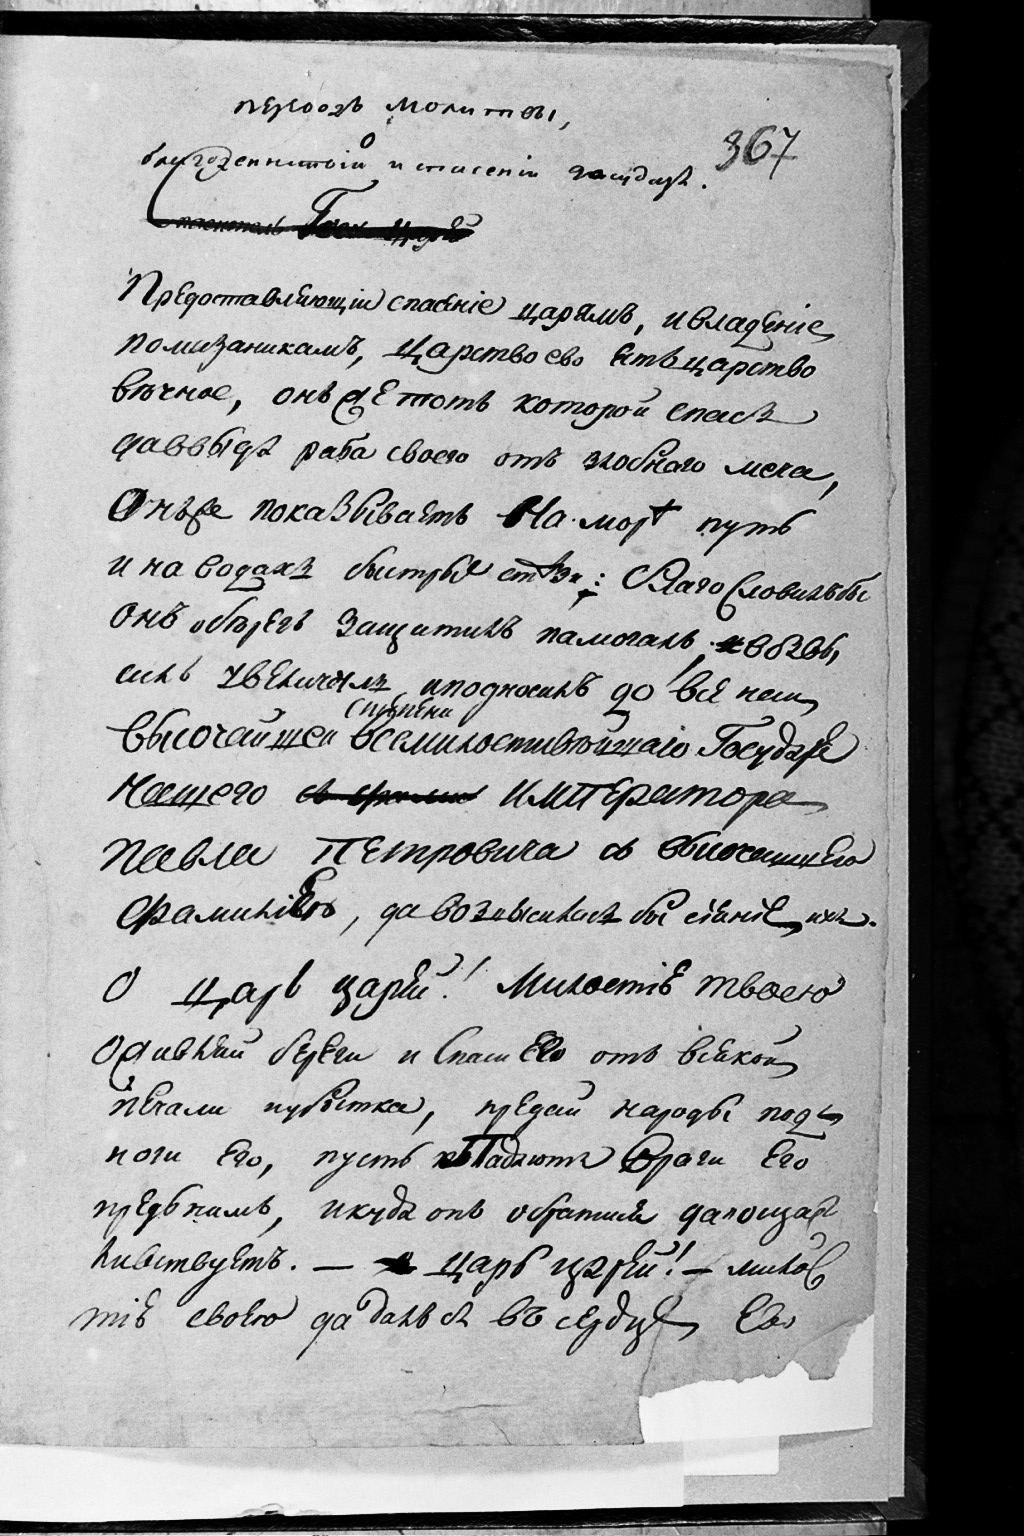 переводъ молитвы,
367
о
благоденствіи и спасеніи государя.
Предоставляющій спасеніе царямъ, и владеніе
помазаникамъ, царство ево есть царство
вѣчное, онъ же тотъ которой спасъ
даввыда раба своего отъ злобнаго меча,
Онъ же показываетъ на морѣ путь
и на водахъ быстрые стѣзи: Благословилъ бы
онъ обѣрегъ защитилъ памогалъ, возвы,
силъ увеличилъ, и подносилъ до все наи,
степени
высочайшей всемилостивѣйшаго Государя
Нашего Императора
Павла Петровича съ высочайшею
Фамиліею, да возвысилась бы сіяніе ихъ.
О царь царей! Милостіе твоею
оживляй береги и спаси Его отъ всякой
печали и убытка, предай народы подъ
ноги Его, пусть падаютъ враги Его
предъ нимъ, и куда онъ обратится да пощас
ливствуетъ. — царь царей! — милос
тіе своею да далъ съ въ сердце Ево